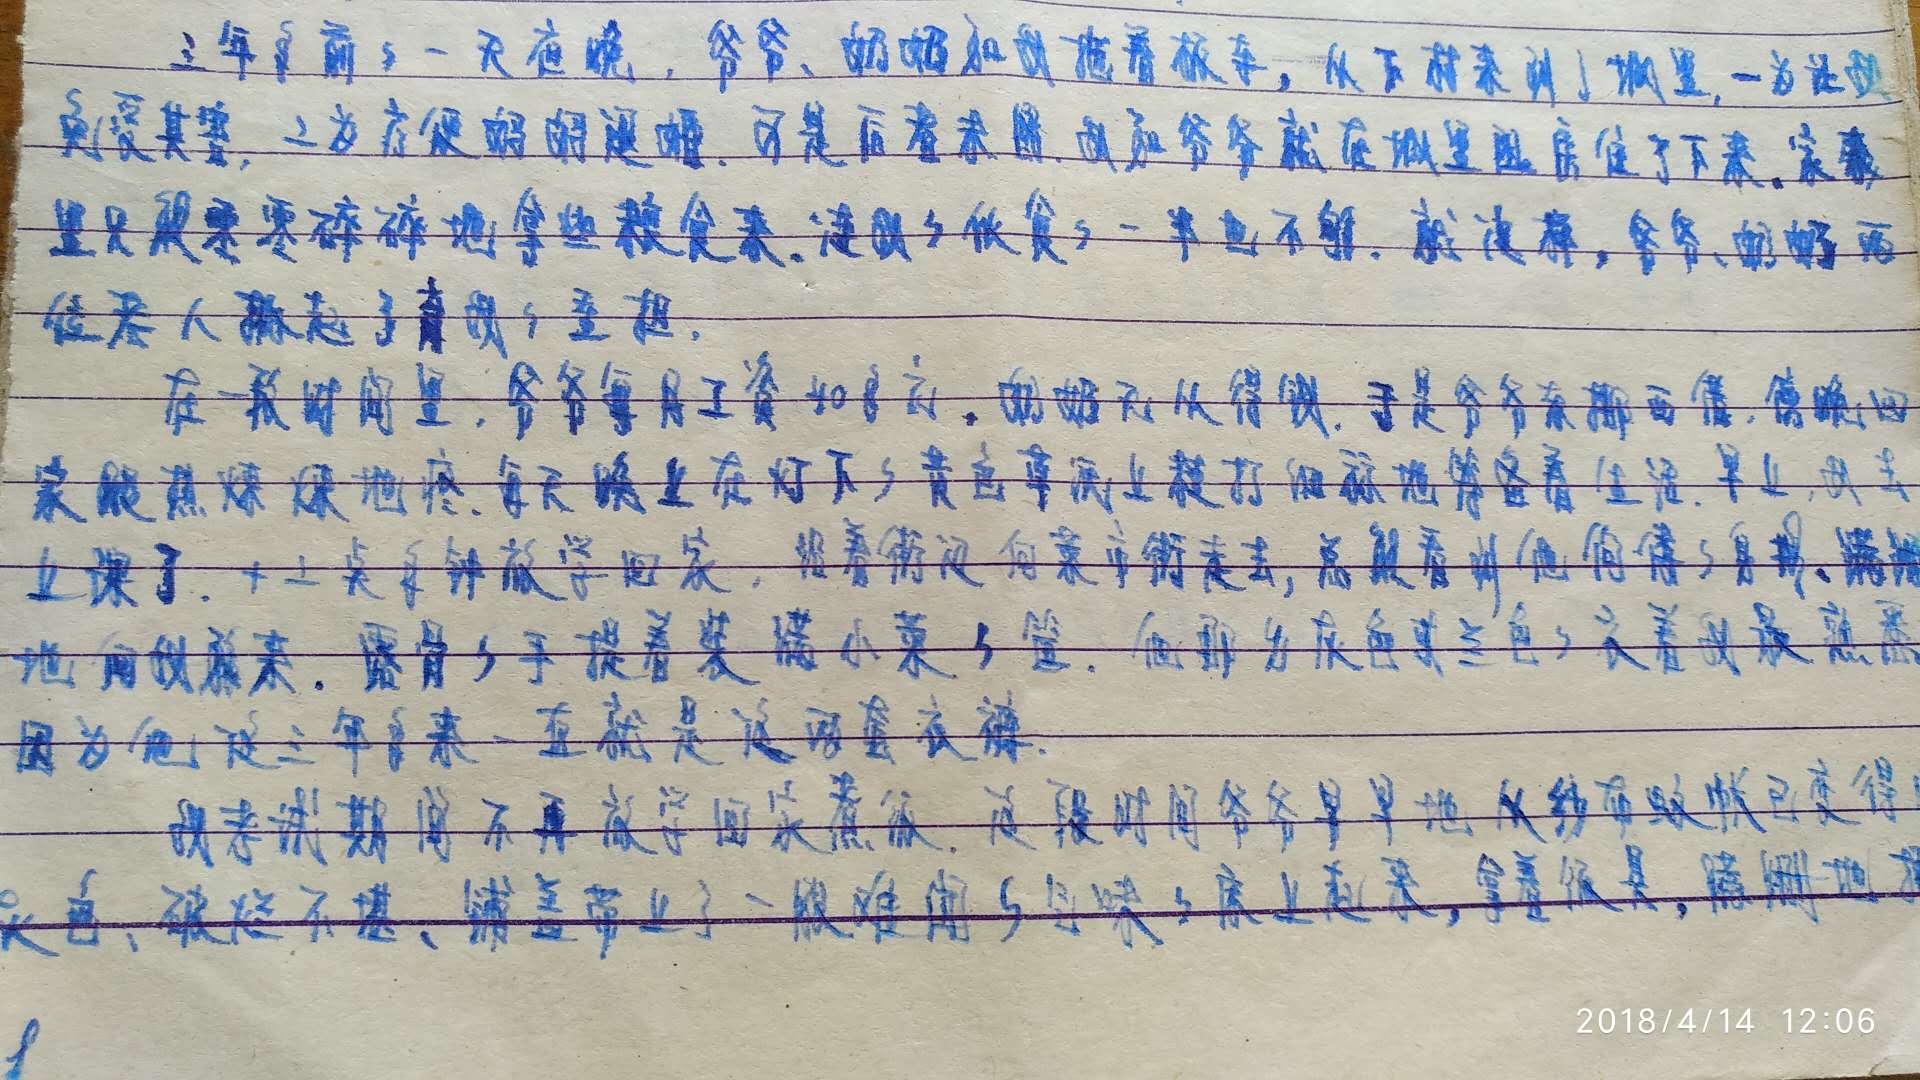 三年多前的一天夜晚，爷爷、奶奶和我拖着板车，从下村来到了城里，一为让我
免受其害，二为方便奶奶退婚。可是后者未留，我和爷爷就在城里租房住了下来。家
里只能零零碎碎地拿些粮食来，连我的伙食的一半也不够。就这样，爷爷、奶奶两
位老人撑起了育我的重担。
在一段时间里，爷爷每月工资40多元，奶奶无从得钱，于是爷爷东挪西借，傍晚回
家腿燕燥燥地疼，每天晚上在灯下的黄色草纸上精打细算地筹备着生活。早上，我去
上课了，十二点多钟放学回家，沿着街边向菜市街走去，总能看到他佝偻的身影，蹒跚
地向我靠来。露骨的手提着装满小菜的篮，他那为灰色或兰色的衣着我最熟悉
因为他这三年多来一直就是这两套衣裤。
我考试期间不再放学回家煮饭，这段时间爷爷早早地从纱布蚊帐已变得
灰色、破烂不堪、铺盖带上了一股难闻的气味的床上起来，拿着伙具，蹒跚地